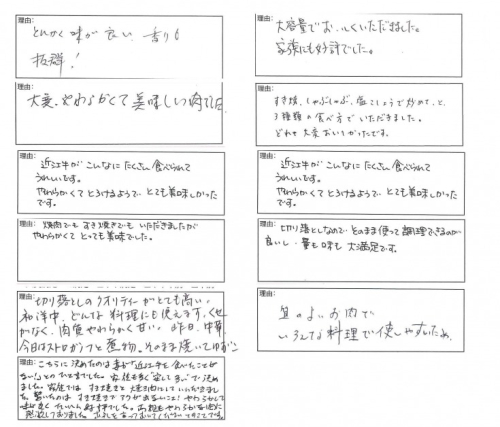 理由:
とにかく味が良い 香りも
抜群!
理由:
大変、やわらかくて美味しい肉でした。
理由:
近江牛がこんなにたくさん食べられて
うれしいです。
やわらかくてとろけるようで、とても美味しかった
です。
理由:
焼肉でもすき焼きでもいただきましたが
やわらかくてとっても美味でした。
理由:
切り落としのクオリティーがとても高い。
和洋中、どんな料理にも使えます。くせ
がなく、肉質やわらかく甘い 昨日、中華
今日はストロガノフと煮物。そのまま焼いてゆずこ
理由:
こちらに決めたのは妻が「近江牛を食べたことが
ない」とのひと言でした。
ました。家庭ではすき焼きと焼き肉にしていただきま
した。驚いたのはすき焼きでアクが出ないこと! やわらかくて
理由:
大容量でおいしくいただきました。
家族にも好評でした。
理由:
すき焼、しゃぶしゃぶ、塩こしょうで炒めて、と
3種類の食べ方でいただきました。
どれも大変おいしかったです。
理由:
近江牛がこんなにたくさん食べられて
うれしいです。
やわらかくてとろけるようで、とても美味しかった
です。
理由:
切り落としなので、そのまま使って調理できるのが
良いし、量も味も大満足です。
理由:
質のよいお肉で
いろんな料理で使しやすいため